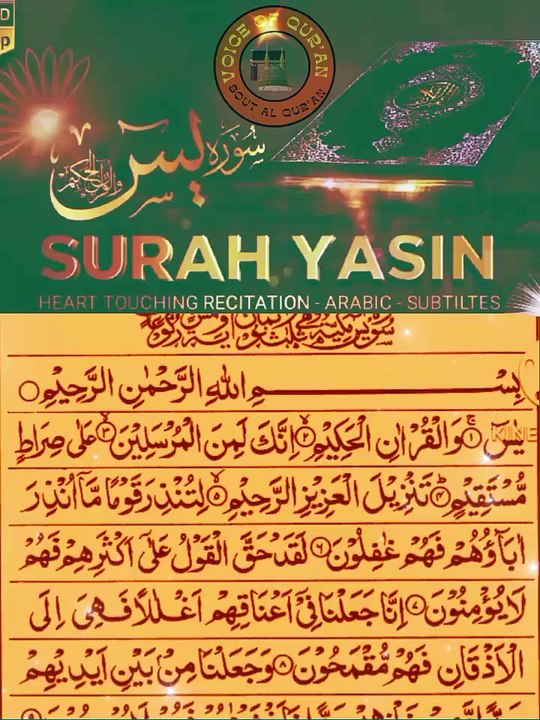 D
p
VOICE OF QUR'AN
SOUT AL QUR'AN
سورة يس
والقرآن الحكيم
SURAH YASIN
HEART TOUCHING RECITATION - ARABIC - SUBTILTES
بِسْمِ اللهِ الرَّحْمٰنِ الرَّحِيْمِ
يٰسٓ ۝۱ وَالْقُرْاٰنِ الْحَكِيْمِ ۝۲ اِنَّكَ لَمِنَ الْمُرْسَلِيْنَ ۝۳ عَلٰى صِرَاطٍ
KINE
مُّسْتَقِيْمٍ ۝۴ تَنْزِيْلَ الْعَزِيْزِ الرَّحِيْمِ ۝۵ لِتُنْذِرَ قَوْمًا مَّاۤ اُنْذِرَ
اٰبَآؤُهُمْ فَهُمْ غٰفِلُوْنَ ۝۶ لَقَدْ حَقَّ الْقَوْلُ عَلٰۤى اَكْثَرِهِمْ فَهُمْ
لَا يُؤْمِنُوْنَ ۝۷ اِنَّا جَعَلْنَا فِيْۤ اَعْنَاقِهِمْ اَغْلٰلًا فَهِيَ اِلَى
الْاَذْقَانِ فَهُمْ مُّقْمَحُوْنَ ۝۸ وَجَعَلْنَا مِنْۢ بَيْنِ اَيْدِيْهِمْ